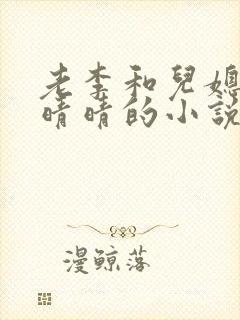 老李和兒媳
晴晴的小說
漫鲸落